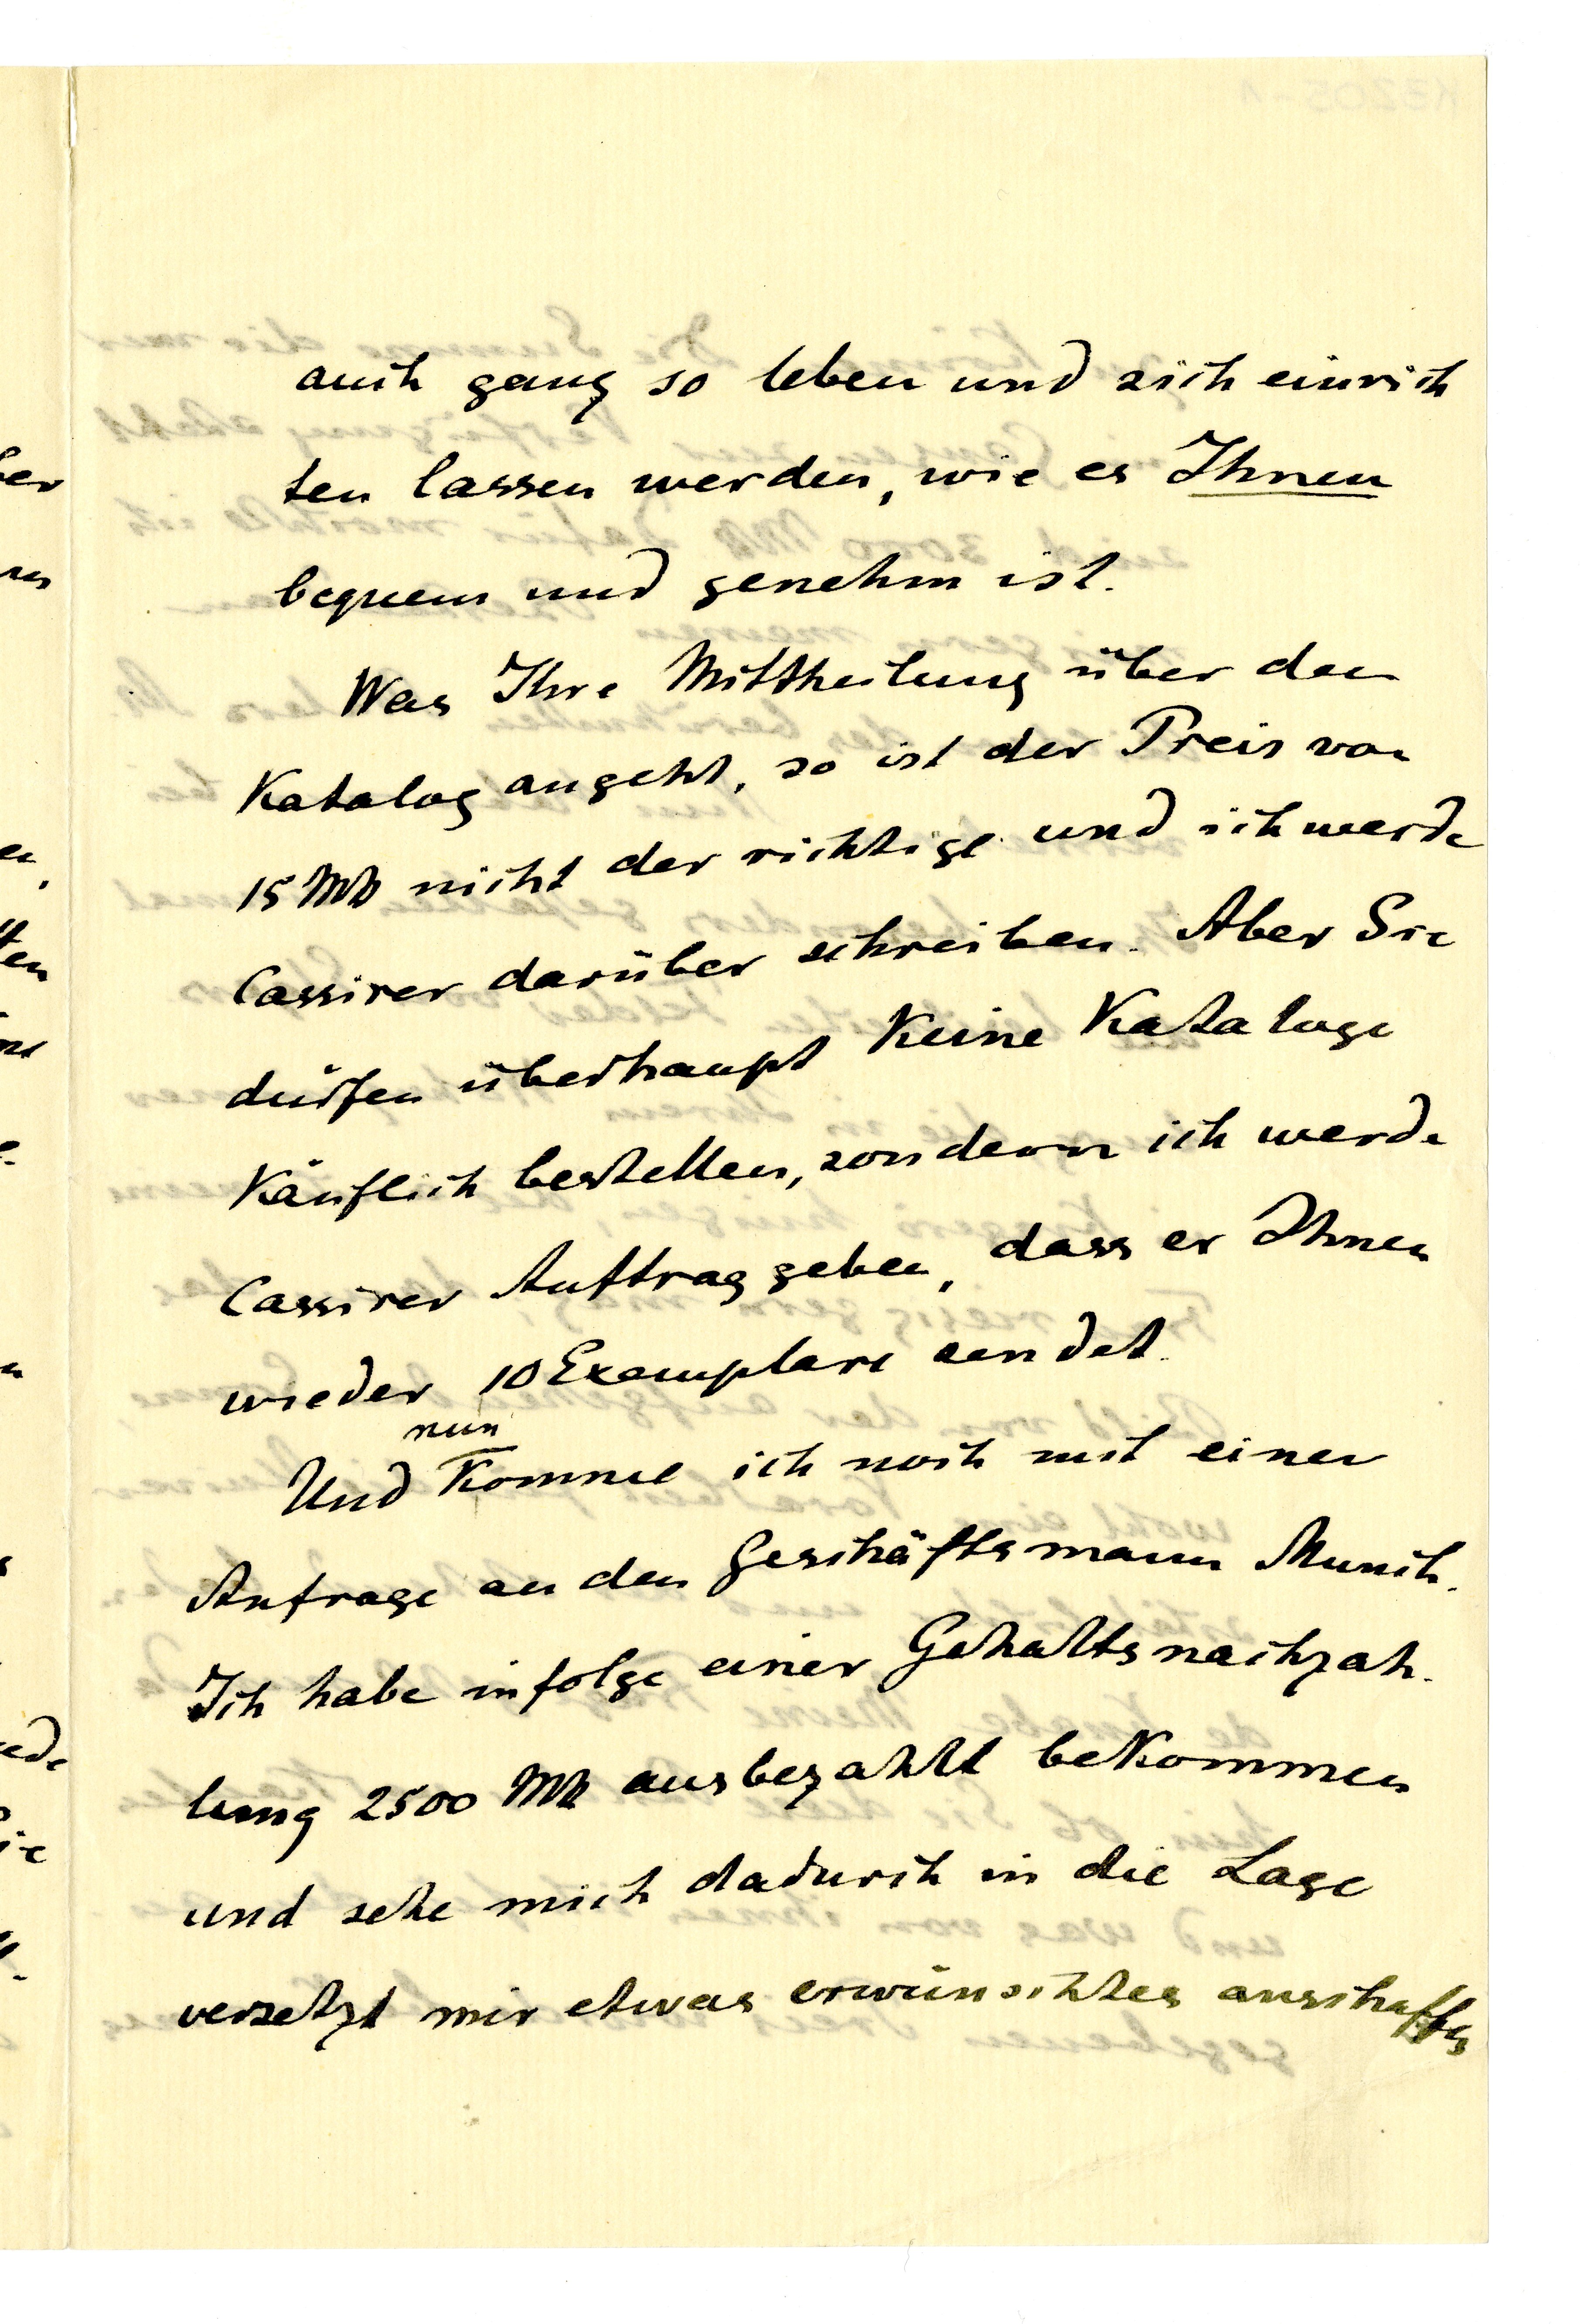 auch ganz so leben und sich einrich
ten lassen werden, wie es Ihnen
bequem und genehm ist.
Was Ihre Mittheilung über den
Katalog angeht, so ist der Preis von
15 Mk nicht der richtige und ich werde
Cassirer darüber schreiben. Aber Sie
dürfen überhaupt keine Kataloge
käuflich bestellen, sondern ich werde
Cassirer Auftrag geben, dass er Ihnen
wieder 10 Exemplare sendet.
nun
Und komme ich noch mit einer
Anfrage an den Geschäftsmann Munch.
Ich habe infolge einer Gehaltsnachzah-
lung 2500 Mk ausbezahlt bekommen
und sehe mich dadurch in die Lage
versetzt mir etwas erwünschtes anschaffen